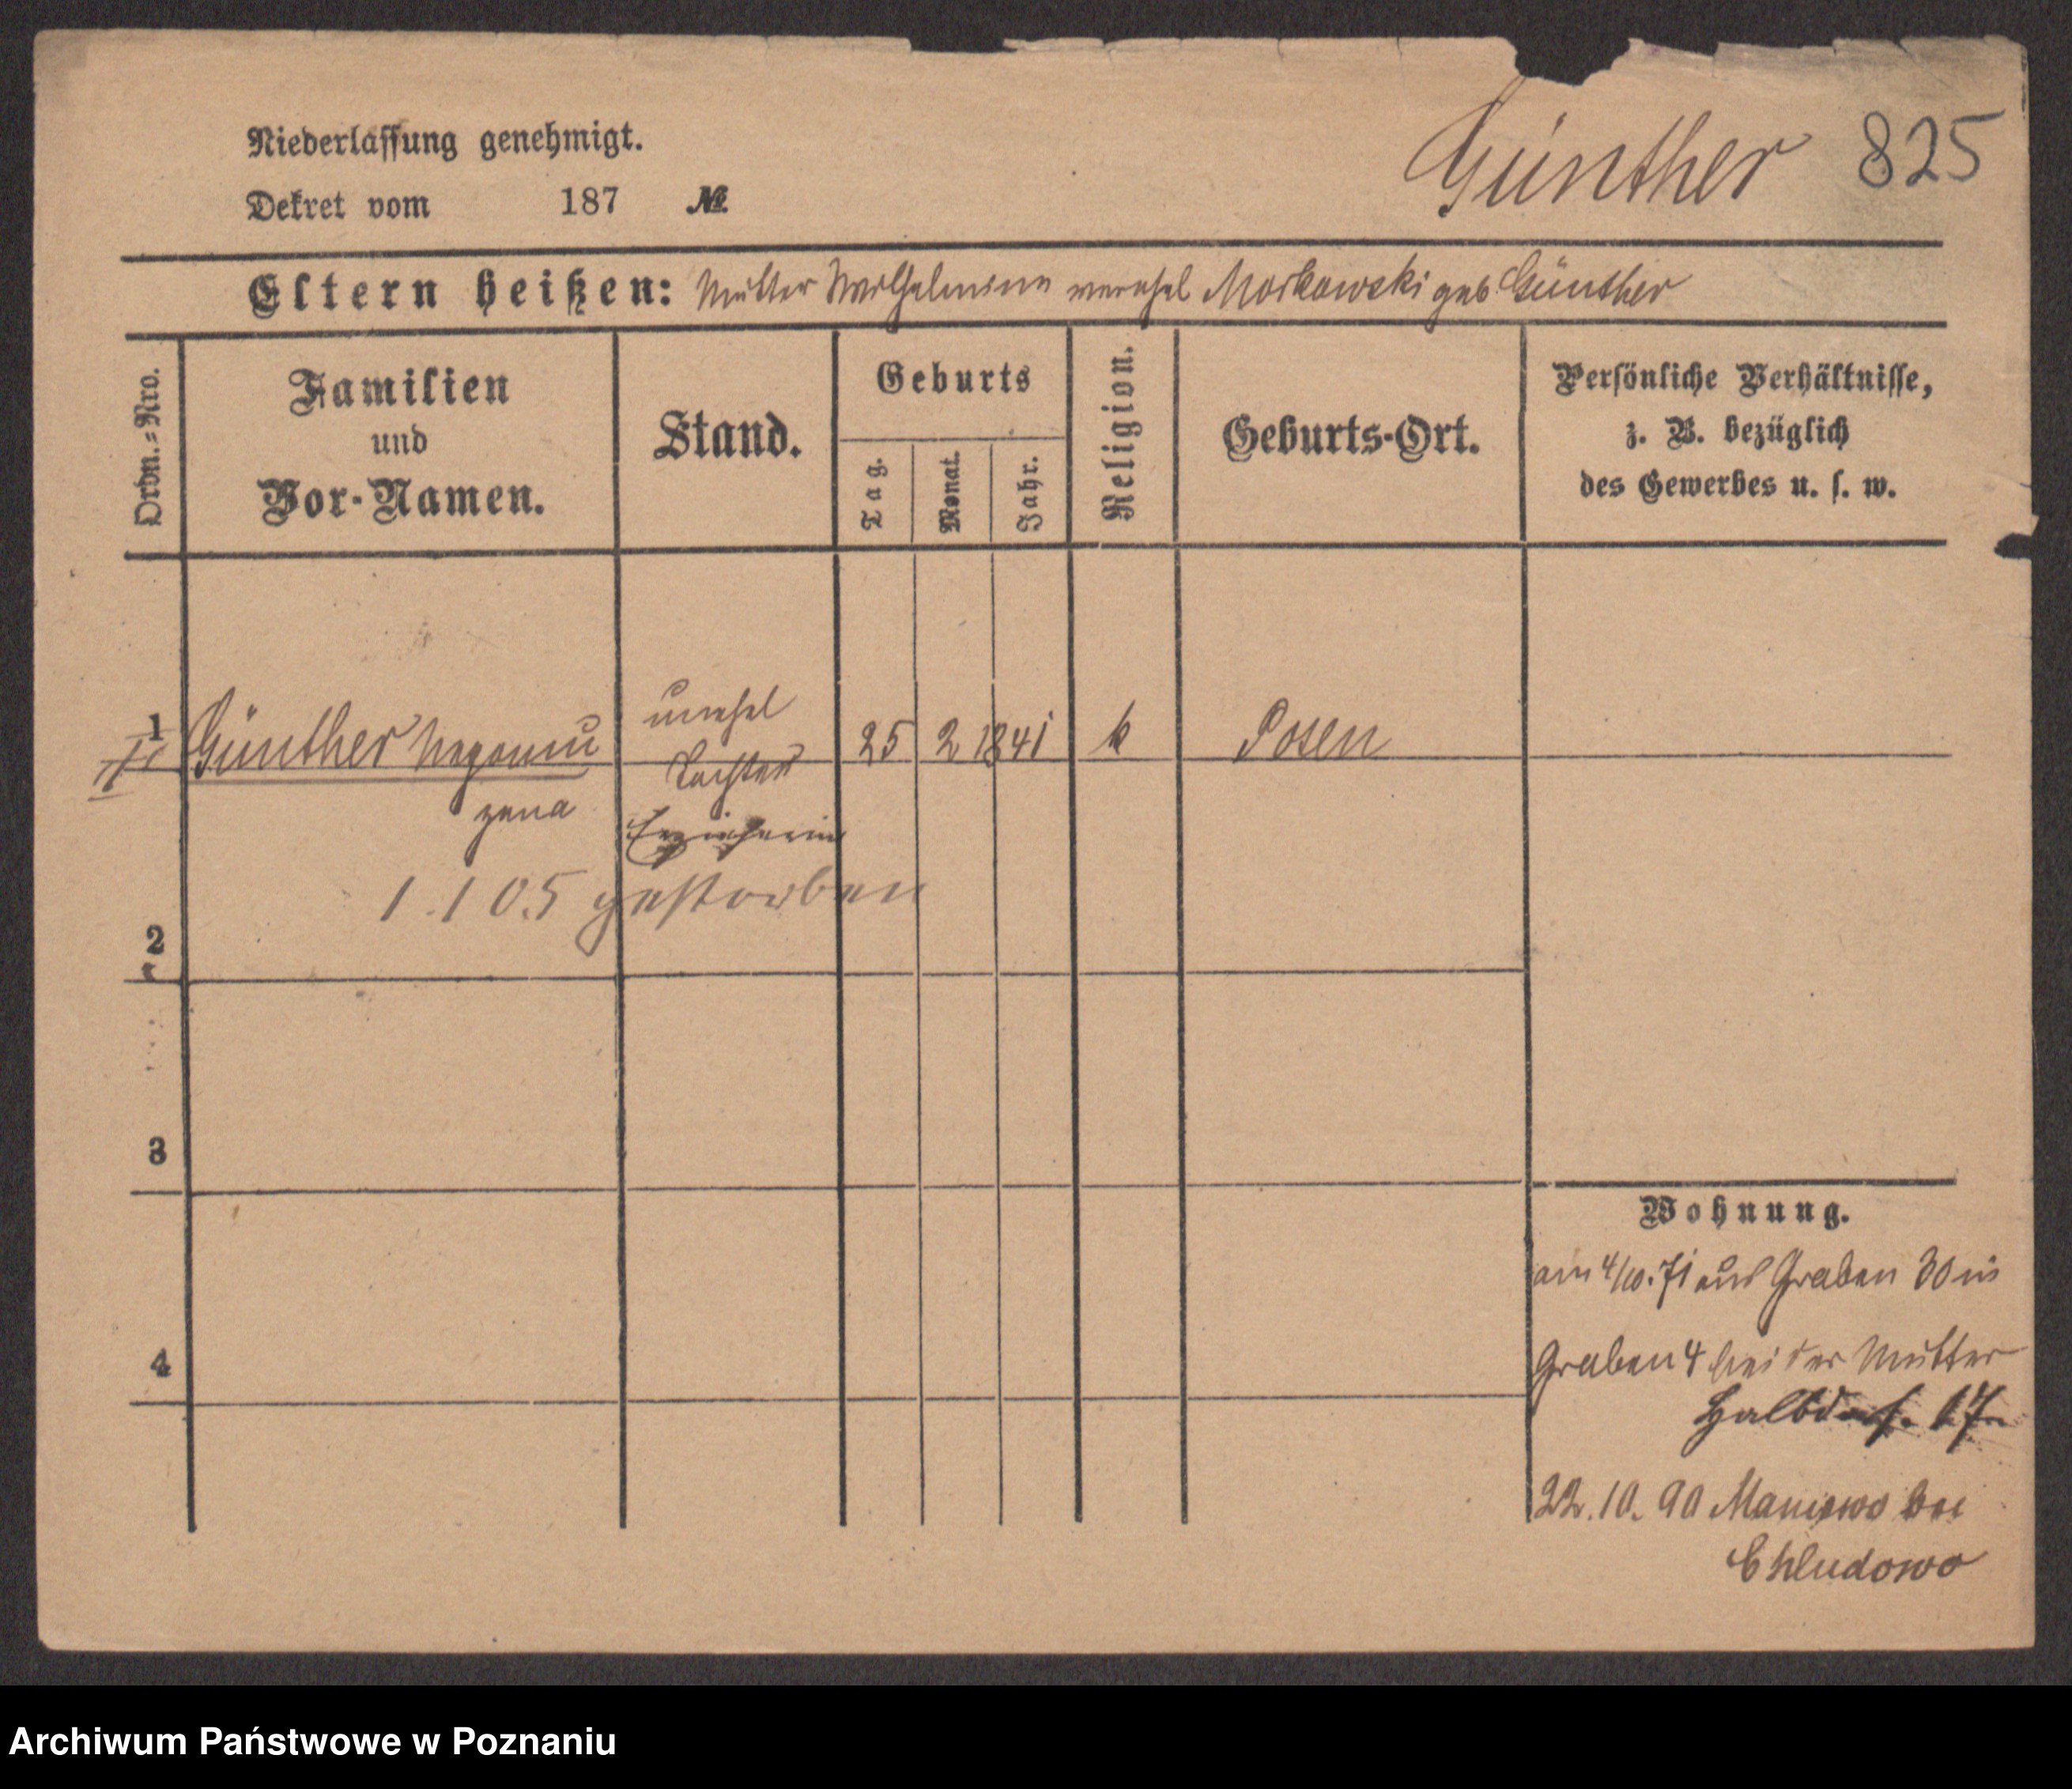 Niederlassung genehmigt.
Günther 825
Dekret vom 187 №
Eltern heißen: Mutter Wilhelmine verehel Morkowski geb. Günther
Ordn.=Nro.
Familien
und
Vor-Namen.
Stand.
Geburts
Tag.
Monat.
Jahr.
Religion.
Geburts-Ort.
Persönliche Verhältnisse,
z. B. bezüglich
des Gewerbes u. s. w.
1 Günther Nepomu unehel 25 2 1841 k Posen
zena Tochter
Erzieherin
1.1 05 gestorben
2
3
4
Wohnung.
am 4/10.71 aus Graben 30 in
Graben 4 bei der Mutter
Halbdorfs. 17
22.10.90 Maniewo bei
Chludowo
Archiwum Państwowe w Poznaniu